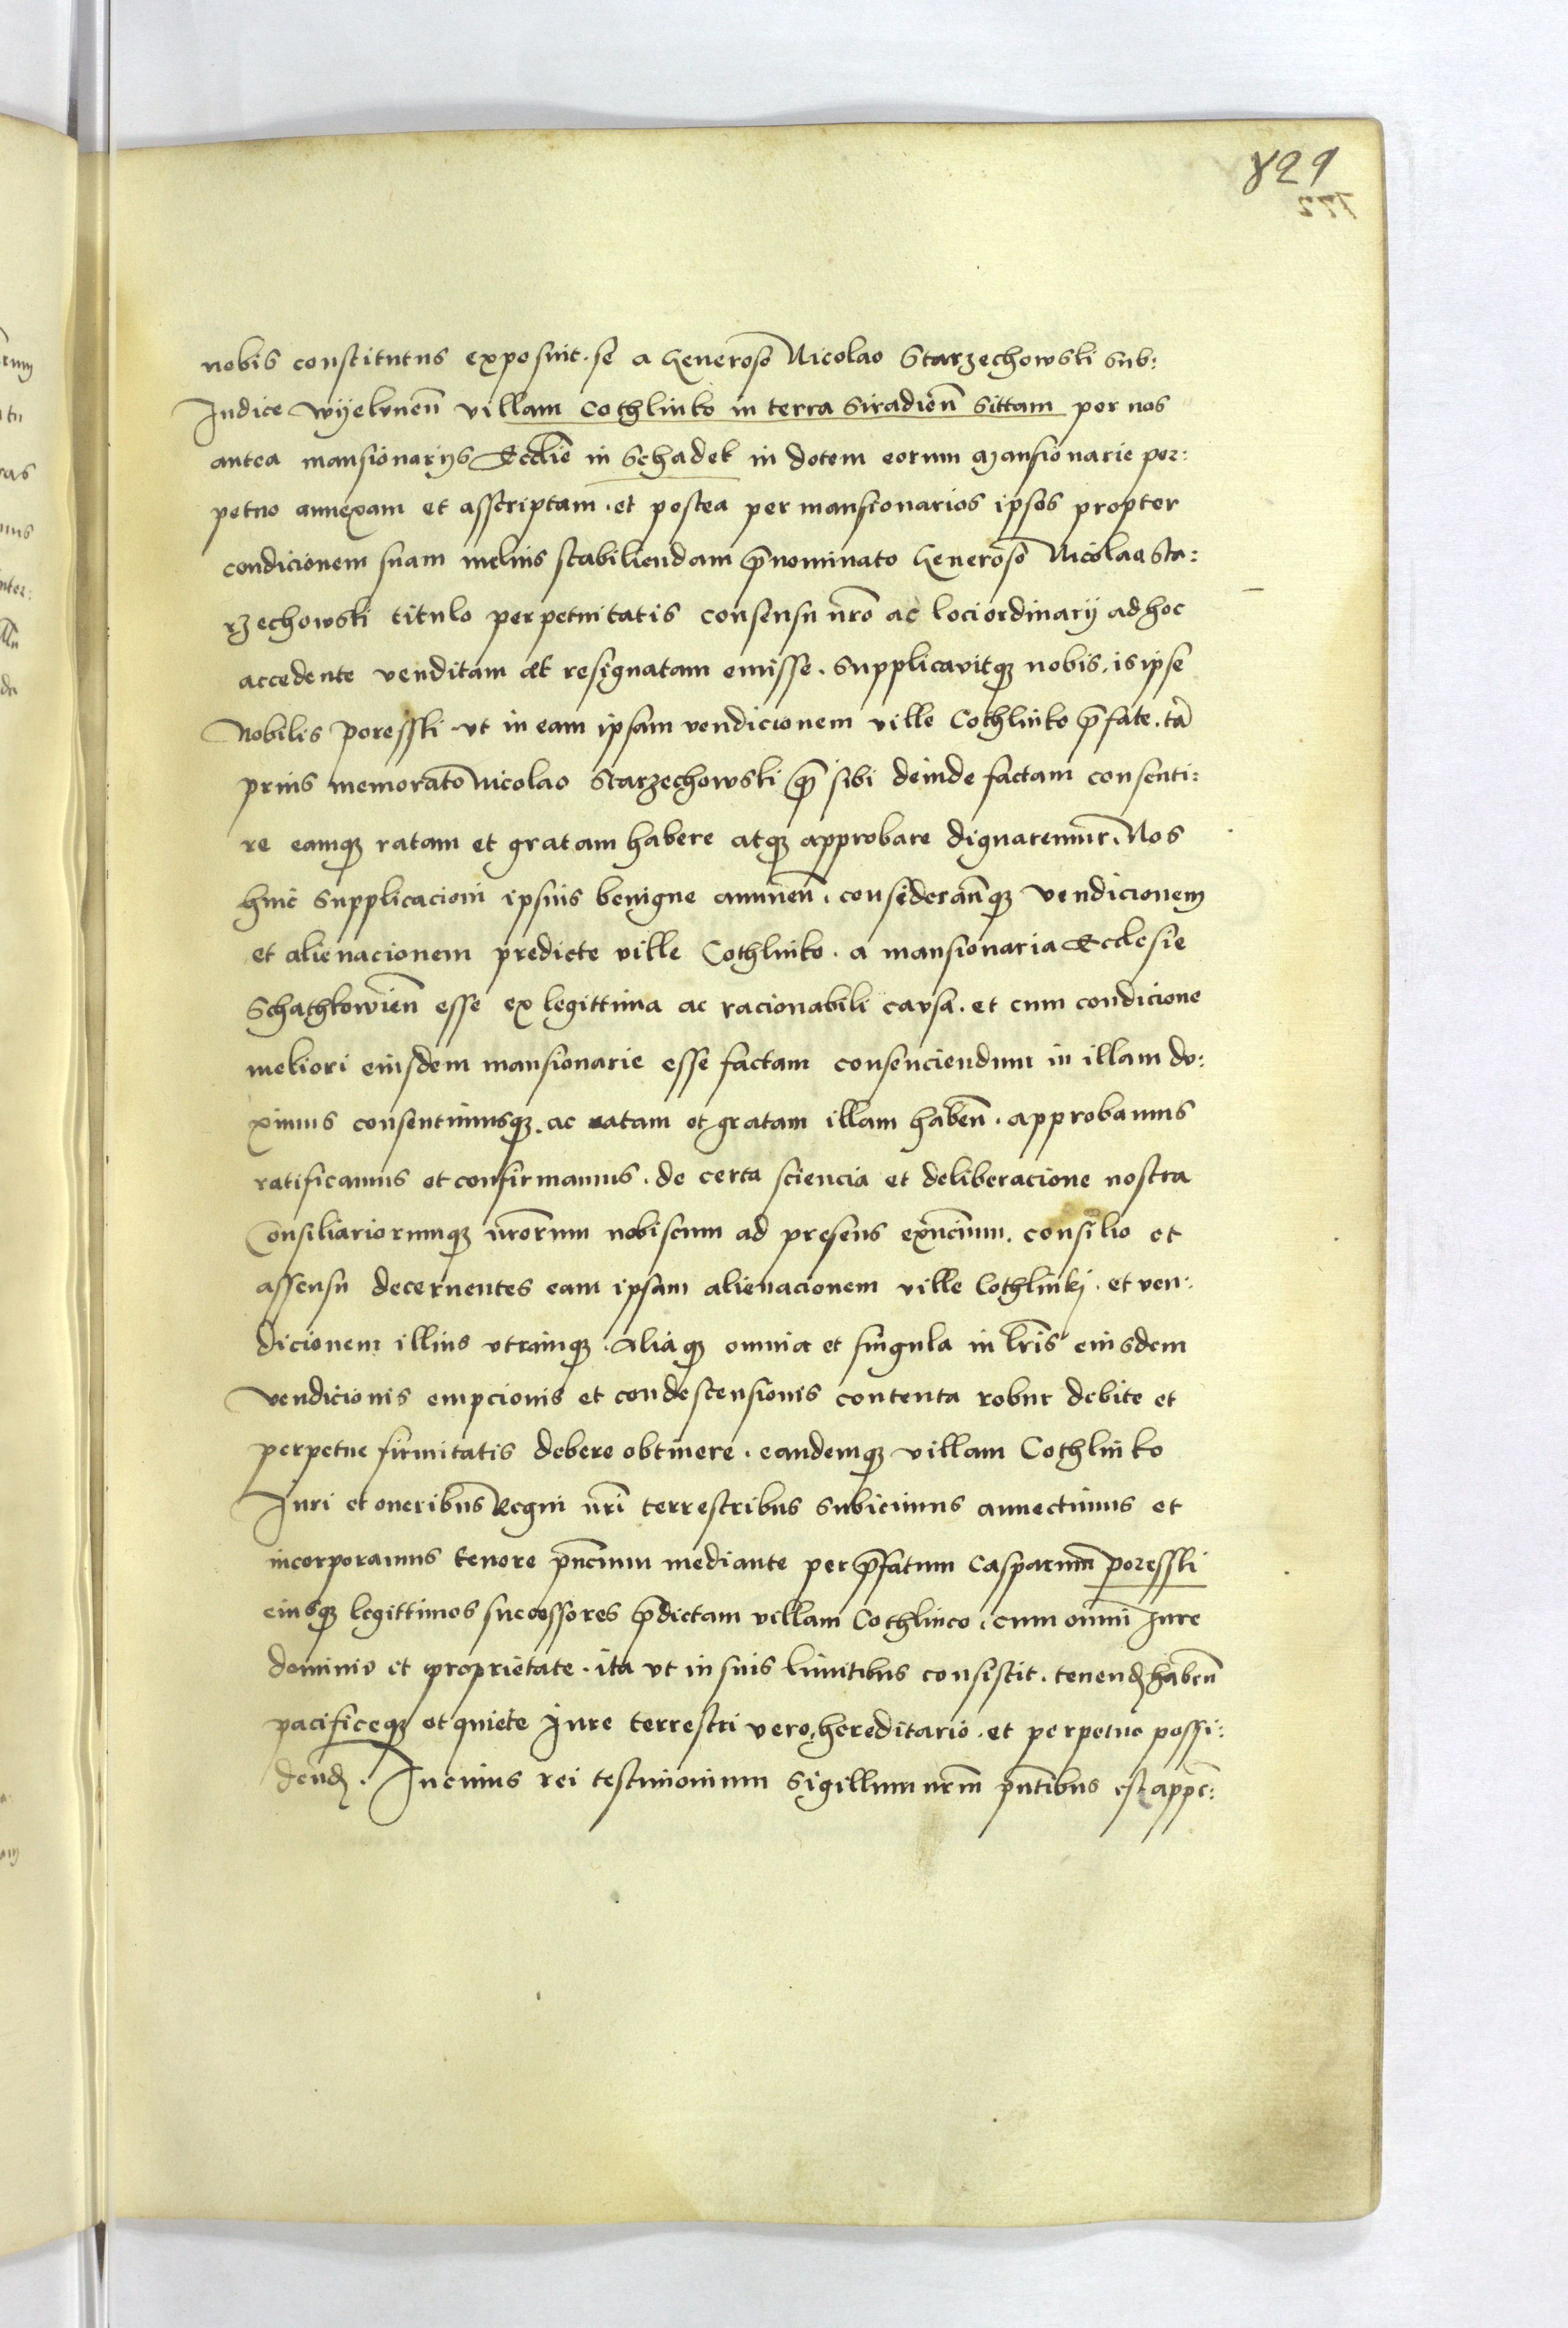 829
772
nobis constitutus exposuit. se a Generoso Nicolao Starzechowski Sub:
Iudice Wyelunen̄ villam Cothlinko in terra Siradien̄ Sittam per nos
antea mansionarijs Eccl̄ie in Schadek in dotem eorum Mansionarie per:
petuo annexam et asscriptam. et postea per mansionarios ipsos propter
condicionem suam melius stabiliendam p̄nominato Generoso Nicolao Sta:
rzechowski titulo perpetuitatis consensu nr̄o ac loci ordinarij ad hoc
accedente venditam et resignatam emisse. Supplicavitq₃ nobis, is ipse
Nobilis Poresski. vt in eam ipsam vendicionem ville Cothlinko p̄fate. tā
prius memorato Nicolao Starzechowski q̄ sibi deinde factam consenti:
re eamq₃ ratam et gratam habere atq₃ approbare dignaremur. Nos
huic Supplicacioni ipsius benigne annuen̄. consideran̄q₃ vendicionem
et alienacionem predicte ville Cothlinko. a mansionaria Ecclesie
Schathkowien̄ esse ex legittima ac racionabili causa. et cum condicione
meliori eiusdem mansionarie esse factam consenciendum in illam du:
ximus consentimusq₃. ac ratam et gratam illam haben̄. approbamus
ratificamus et confirmamus. de certa sciencia et deliberacione nostra
Consiliariorumq₃ nr̄orum nobiscum ad presens exn̄cium. consilio et
assensu decernentes eam ipsam alienacionem ville Cothlinki. et ven:
dicionem illius vtramq₃. Aliaq₃ omnia et singula in lr̄is eiusdem
vendicionis empcionis et condescensionis contenta robur debite et
perpetue firmitatis debere obtinere. eandemq₃ villam Cothlinko
Iuri et oneribus Regni nr̄i terrestribus Subicimus annectimus et
incorporamus tenore pn̄cium mediante per p̄fatum Casparum Poresski
eiusq₃ legittimos successores p̄dictam villam Cothlinco. cum omni Iure
dominio et proprietate. ita vt in suis limitibus consistit. tenend̄ haben̄
pacificeq₃ et quiete Iure terrestri vero, hereditario. et perpetuo possi:
dend̄. In cuius rei testimonium Sigillum nr̄m pn̄tibus est appē: